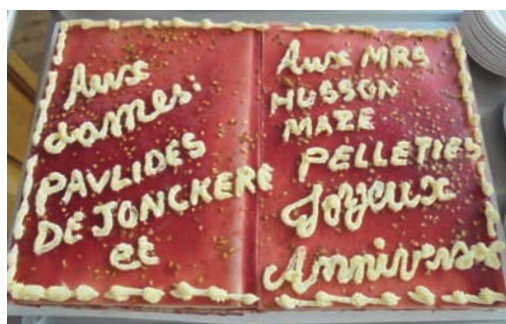 Aux
dames:
PAVLIDES
DE JONCKERE
et
Aux MRS
HUSSON
MAZE
PELLETIES
Joyeux